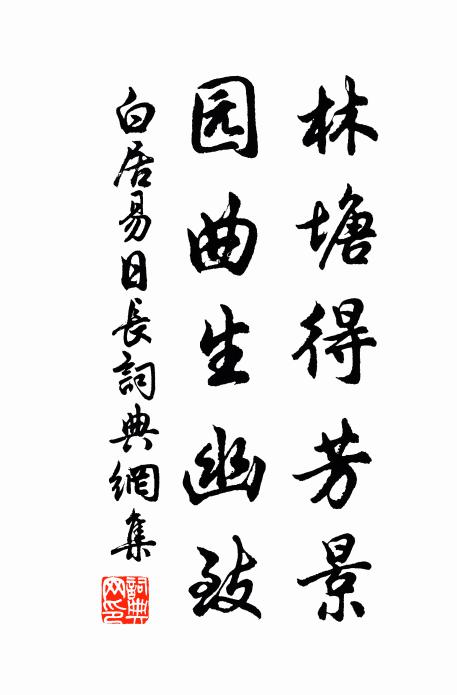 林塘得芳景
园曲生幽致
白居易日長詞典網集
詞典網印